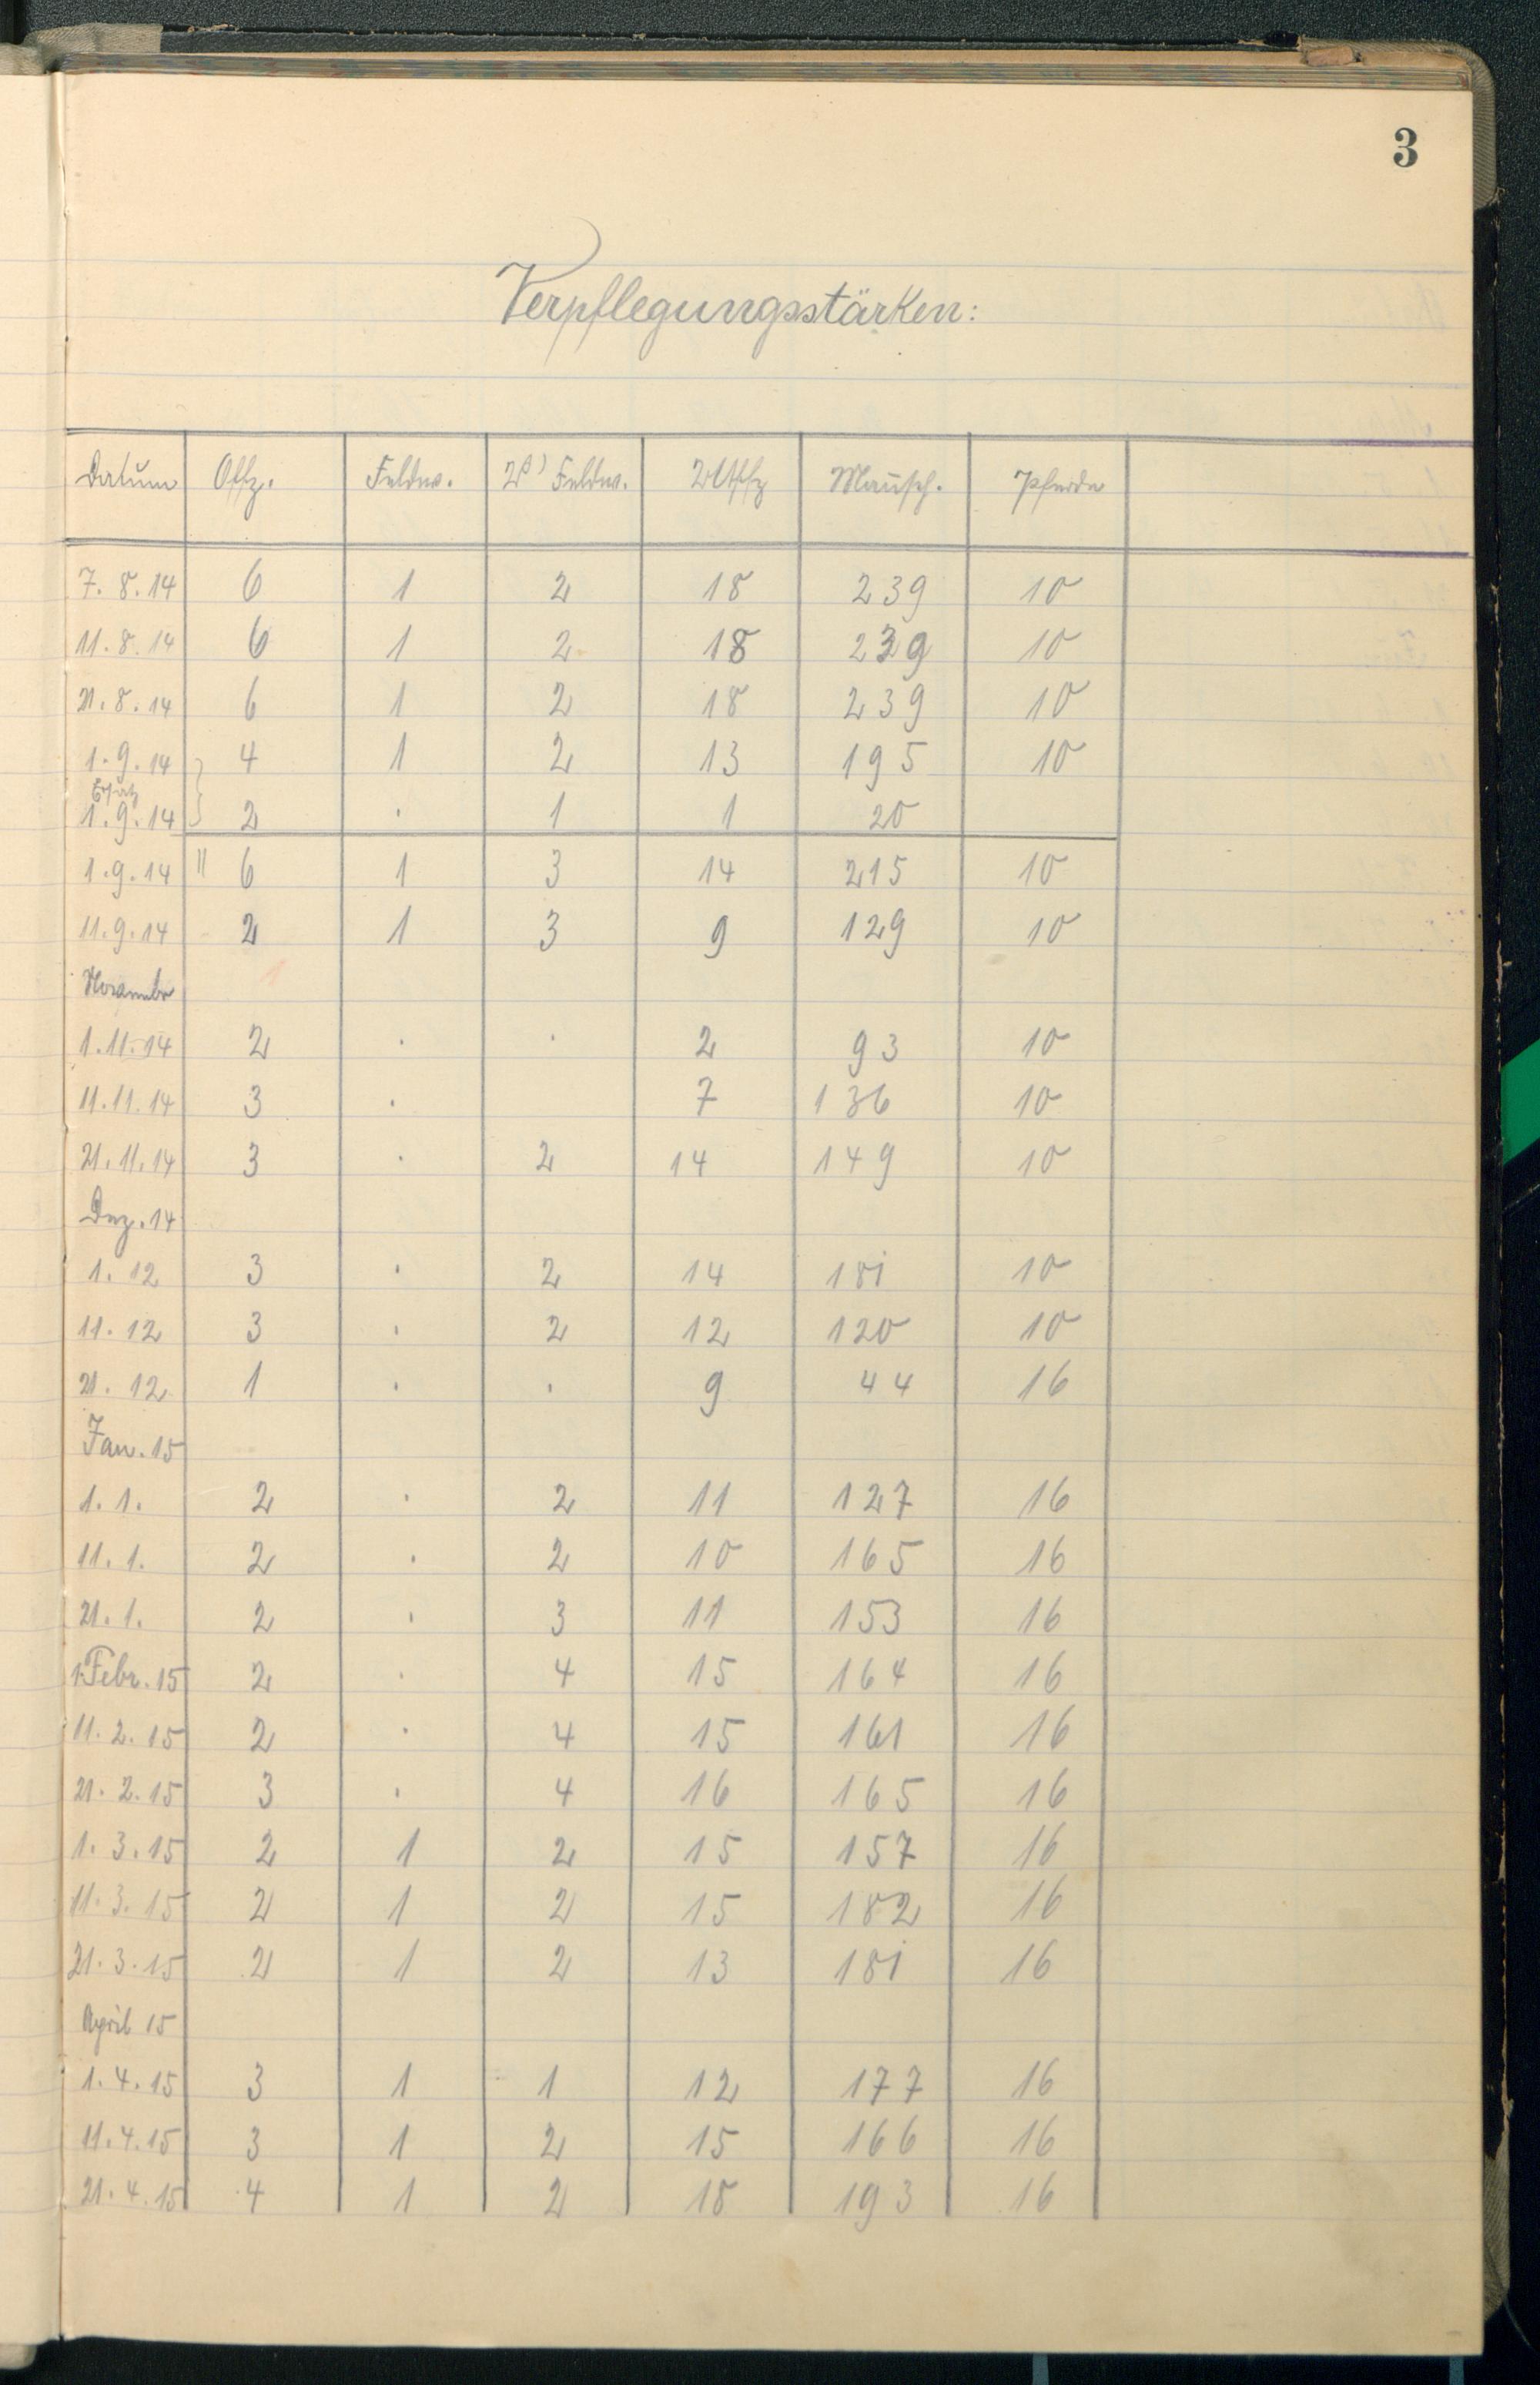 3
Verpflegungsstärken:
Datum Offz. Feldw. Feldw. Utffz Mannsch. Pferde
7. 8. 14 6 1 2 18 239 10
11. 8. 14 6 1 2 18 239 10
21. 8. 14 6 1 2 18 239 10
1. 9. 14 4 1 2 13 195 10
Ersatz
1. 9. 14 2 . 1 1 20
1. 9. 14 " 6 1 3 14 215 10
11. 9. 14 2 1 3 9 129 10
November
1. 11. 14 2 . . 2 93 10
11. 11. 14 3 . 7 136 10
21. 11. 14 3 . 2 14 149 10
Dez. 14
1. 12 3 . 2 14 181 10
11. 12 3 . 2 12 120 10
21. 12 1 . . 9 44 16
Jan. 15
1. 1. 2 . 2 11 127 16
11. 1. 2 . 2 10 165 16
21. 1. 2 . 3 11 153 16
1. Febr. 15 2 . 4 15 164 16
11. 2. 15 2 . 4 15 161 16
21. 2. 15 3 . 4 16 165 16
1. 3. 15 2 1 2 15 157 16
11. 3. 15 2 1 2 15 182 16
21. 3. 15 2 1 2 13 181 16
April 15
1. 4. 15 3 1 1 12 177 16
11. 4. 15 3 1 2 15 166 16
21. 4. 15 4 1 2 18 193 16